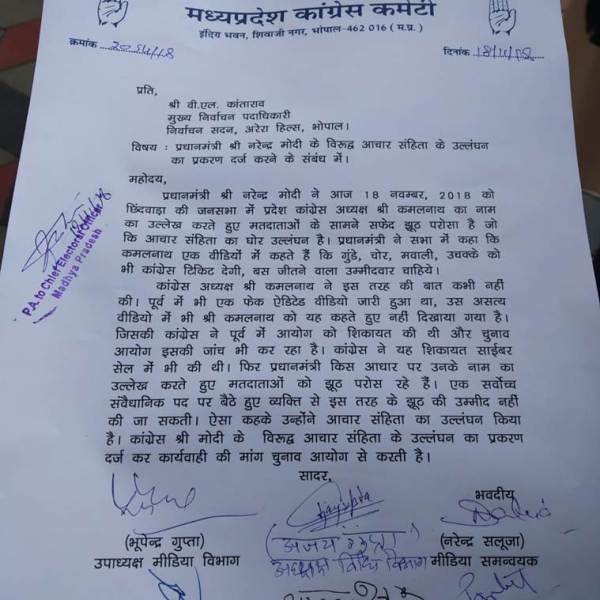 मध्यप्रदेश कांग्रेस कमेटी
इंदिरा भवन, शिवाजी नगर, भोपाल-462 016 (म.प्र.)
क्रमांक
दिनांक 18/11/18
प्रति,
श्री वी.एल. कांताराव
मुख्य निर्वाचन पदाधिकारी
निर्वाचन सदन, अरेरा हिल्स, भोपाल।
विषय : प्रधानमंत्री श्री नरेन्द्र मोदी के विरूद्व आचार संहिता के उल्लंघन
का प्रकरण दर्ज करने के संबंध में।
महोदय,
प्रधानमंत्री श्री नरेन्द्र मोदी ने आज 18 नवम्बर, 2018 को
छिंदवाड़ा की जनसभा में प्रदेश कांग्रेस अध्यक्ष श्री कमलनाथ का नाम
का उल्लेख करते हुए मतदाताओं के सामने सफेद झूठ परोसा है जो
कि आचार संहिता का घोर उल्लंघन है। प्रधानमंत्री ने सभा में कहा कि
कमलनाथ एक वीडियों में कहते हैं कि गुंडे, चोर, मवाली, उचक्के को
भी कांग्रेस टिकिट देगी, बस जीतने वाला उम्मीदवार चाहिये।
कांग्रेस अध्यक्ष श्री कमलनाथ ने इस तरह की बात कभी नहीं
की। पूर्व में भी एक फेक ऐडिटेड वीडियो जारी हुआ था, उस असत्य
वीडियो में भी श्री कमलनाथ को यह कहते हुए नहीं दिखाया गया है।
जिसकी कांग्रेस ने पूर्व में आयोग को शिकायत की थी और चुनाव
आयोग इसकी जांच भी कर रहा है। कांग्रेस ने यह शिकायत साईबर
सेल में भी की थी। फिर प्रधानमंत्री किस आधार पर उनके नाम का
उल्लेख करते हुए मतदाताओं को झूठ परोस रहे हैं। एक सर्वोच्च
संवैधानिक पद पर बैठे हुए व्यक्ति से इस तरह के झूठ की उम्मीद नहीं
की जा सकती। ऐसा कहके उन्होंने आचार संहिता का उल्लंघन किया
है। कांग्रेस श्री मोदी के विरूद्व आचार संहिता के उल्लंघन का प्रकरण
दर्ज कर कार्यवाही की मांग चुनाव आयोग से करती है।
सादर,
भवदीय
P.A. to Chief Electoral Officer
Madhya Pradesh
(भूपेन्द्र गुप्ता)
उपाध्यक्ष मीडिया विभाग
(अजय गुप्ता)
अध्यक्ष विधि विभाग
(नरेन्द्र सलूजा)
मीडिया समन्वयक